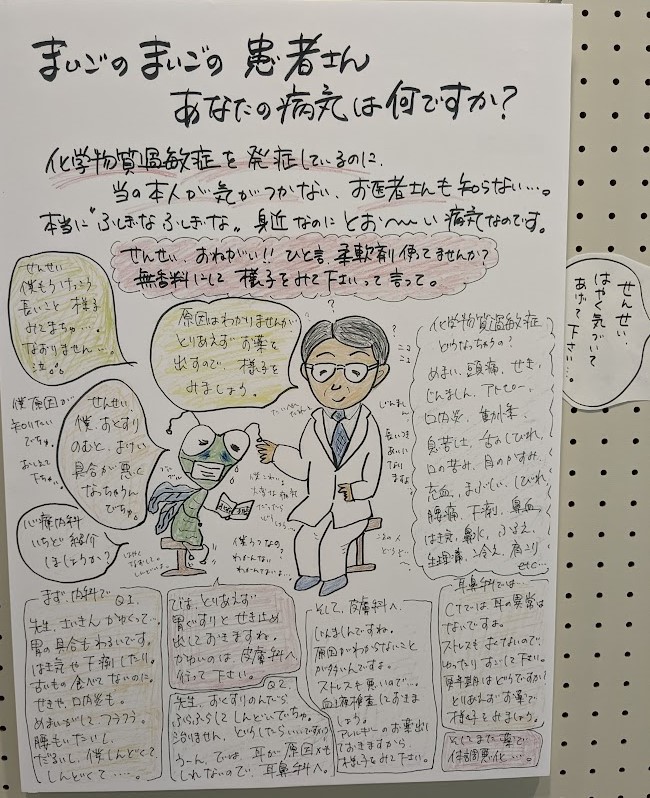 まいごのまいごの 患者さん
あなたの病気は何ですか?
化学物質過敏症を発症しているのに、
当の本人が気がつかない、お医者さんも知らない…。
本当に"ふしぎな ふしぎな"身近なのにとお〜〜い病気なのです。
せんせい、おねがい!! ひと言、柔軟剤使ってませんか?
無香料にして様子をみて下さいって言って。
せんせい
僕もうけっこう
長いこと様子
みてまちゅ…。
なおりません…。
泣。
原因はわかりませんが
とりあえずお薬を
出すので、様子を
みましょう。
せんせい、
はやく気づいて
あげて下さい…。
僕原因が
知りたい
でちゅ。
おしえて
下ちゃい。
せんせい、
僕、おくすり
のむと、よけい
具合が悪く
なっちゃうん
でちゅ。
心療内科
いちど紹介
しましょうか?
長いつき
あいに
なり
ますよ
化学物質過敏症
どうなっちゃうの?
めまい、頭痛、せき、
じんましん、アトピー、
口内炎、動悸、
息苦しさ、舌のしびれ、
口の苦み、目のかすみ、
充血、まぶしい、しびれ、
腰痛、下痢、鼻血、
はき気、鼻水、ふるえ、
生理痛、冷え、肩こり
etc…
まず、内科で Q1.
先生、さいきんかゆくって…。
胃の具合もわるいです。
はき気や下痢したり。
古いもの食べてないのに。
せきや、口内炎も。
めまいがして、フラフラ。
腰もいたいし、
だるいし、僕しんどくて
しんどくて……。
では、とりあえず
胃ぐすりとせき止め
出しておきますね。
かゆいのは、皮膚科へ
行って下さい。
Q2.
先生、おくすりのんだら
ふらふらしてしんどいでちゅ。
治りません、どうしたらいいですか
うーん、では、耳が原因かも
しれないので、耳鼻科へ。
そして、皮膚科へ。
じんましんですね。
原因がわからないこと
が多いんですよ。
ストレスも悪いので…。
血液検査しておきま
しょう。
アレルギーのお薬出し
ておきますから
様子をみて下さい。
耳鼻科では…
CTでは耳の異常は
ないですよ。
ストレスもよくないので、
ゆったりすごして下さい。
更年期はどうですか?
とりあえずお薬で
様子をみましょう。
そしてまた薬で
体調悪化…。